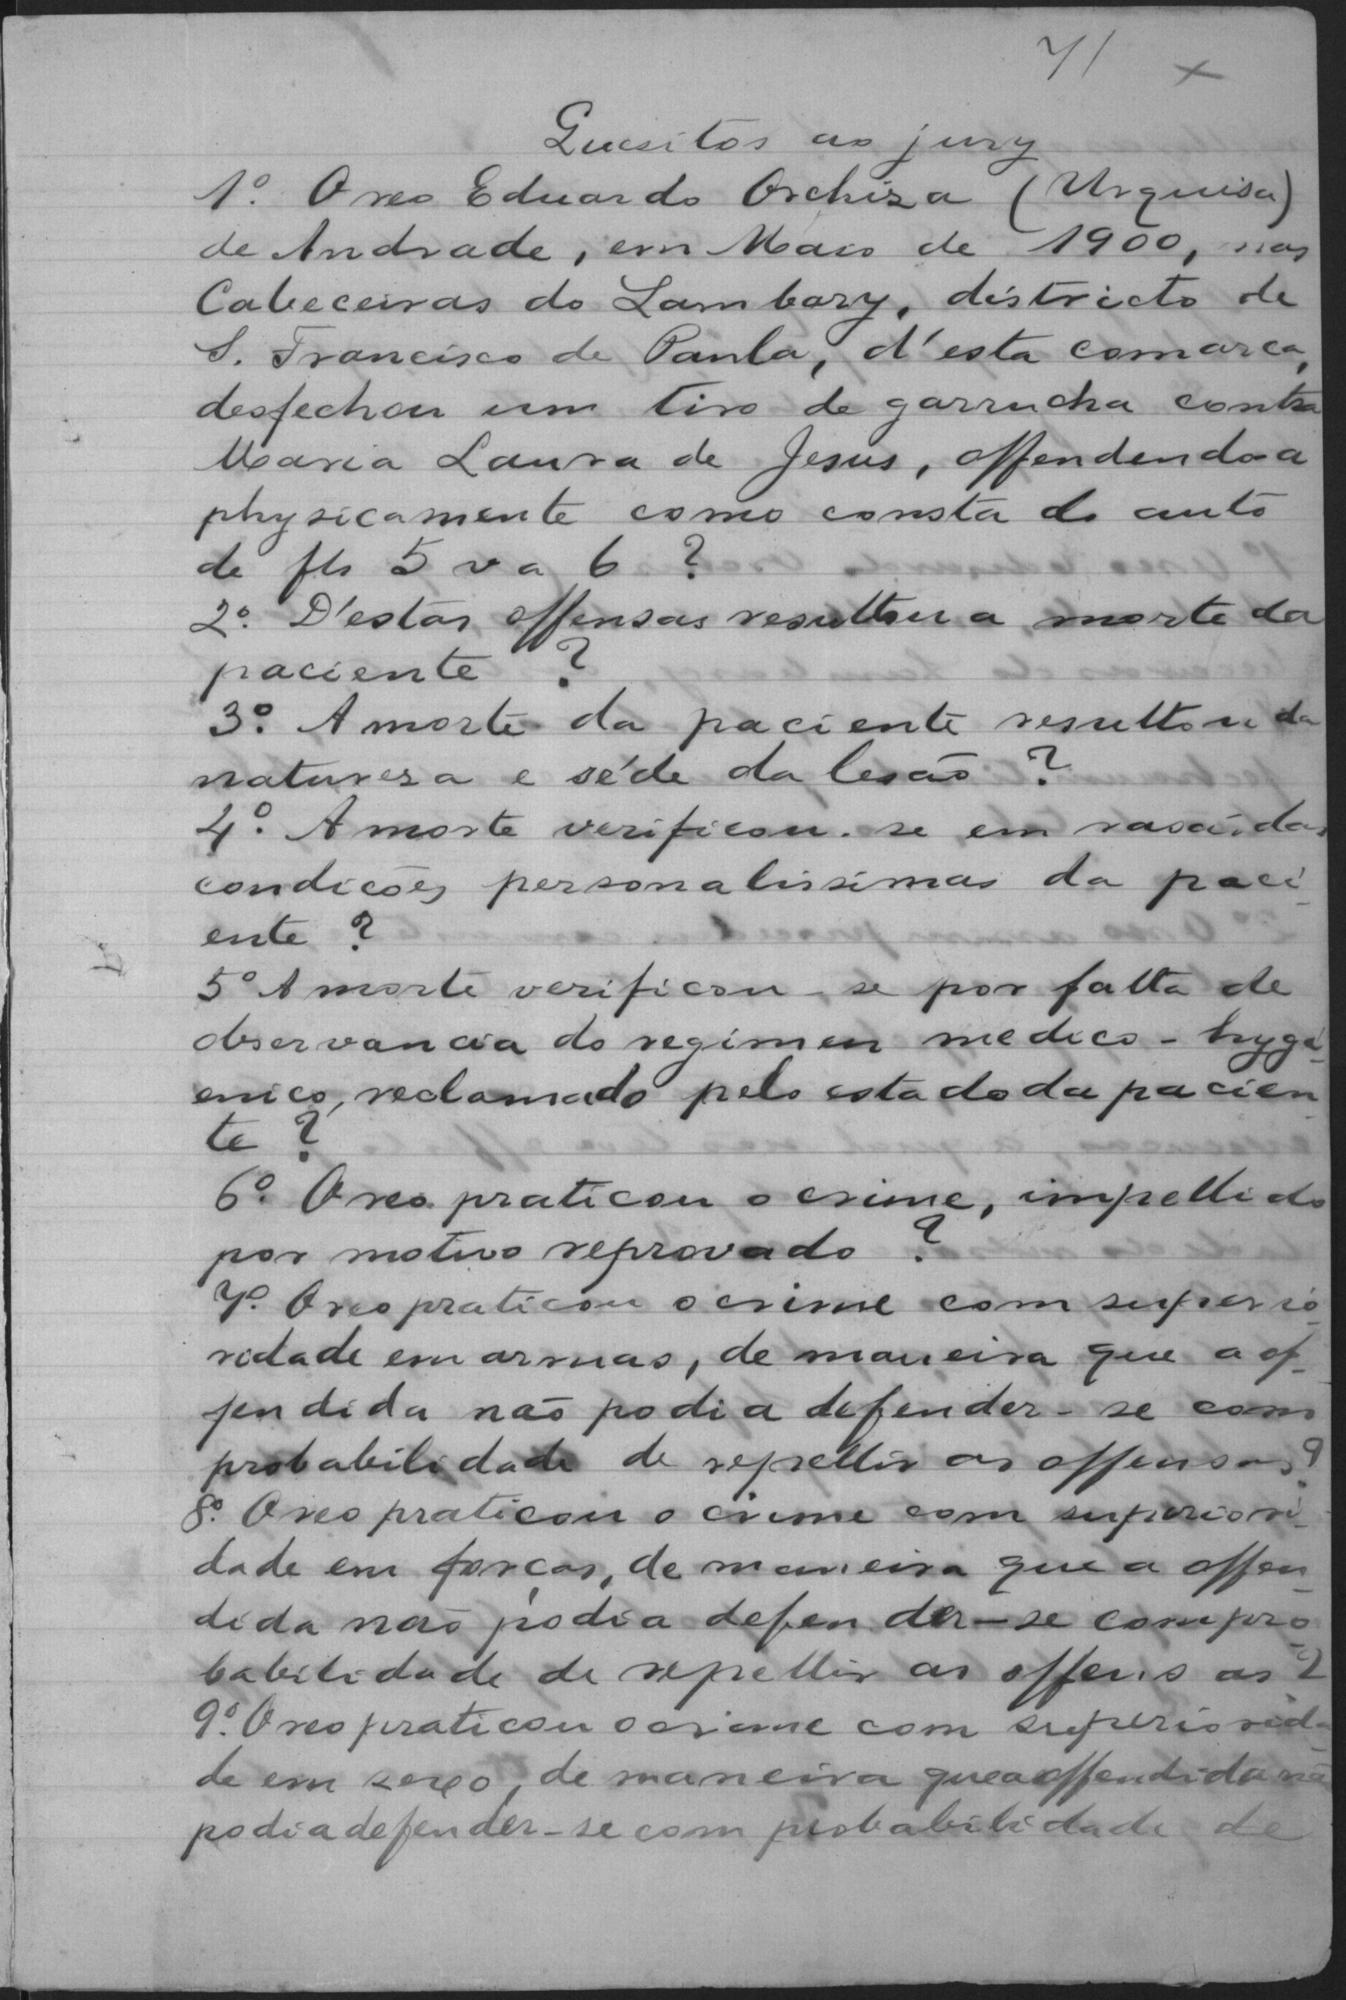 71 x
Quesitos ao jury
1º. O reo Eduardo Orchiza (Urquisa)
de Andrade, em Maio de 1900, nas
Cabeceiras do Lambary, districto de
S. Francisco de Paula, d'esta comarca,
desfechou um tiro de garrucha contra
Maria Laura de Jesus, offendendo-a
physicamente como consta do auto
de fls 5 v a 6 ?
2º. D'estas offensas resultou a morte da
paciente ?
3º. A morte da paciente resultou da
natureza e séde da lesão ?
4º. A morte verificou-se em rasão das
condições personalissimas da paci-
ente ?
5º A morte verificou-se por falta de
observancia do regimen medico-hygi-
enico, reclamado pelo estado da pacien-
te ?
6º. O reo praticou o crime, impellido
por motivo reprovado ?
7º. O reo praticou o crime com superio-
ridade em armas, de maneira que a of-
fendida não podia defender-se com
probabilidade de repellir as offensas?
8º. O reo praticou o crime com superiori-
dade em forças, de maneira que a offen-
dida não podia defender-se com pro-
babilidade de repellir as offensas ?
9º. O reo praticou o crime com superiorida-
de em sexo, de maneira que a offendida não
podia defender-se com probabilidade de